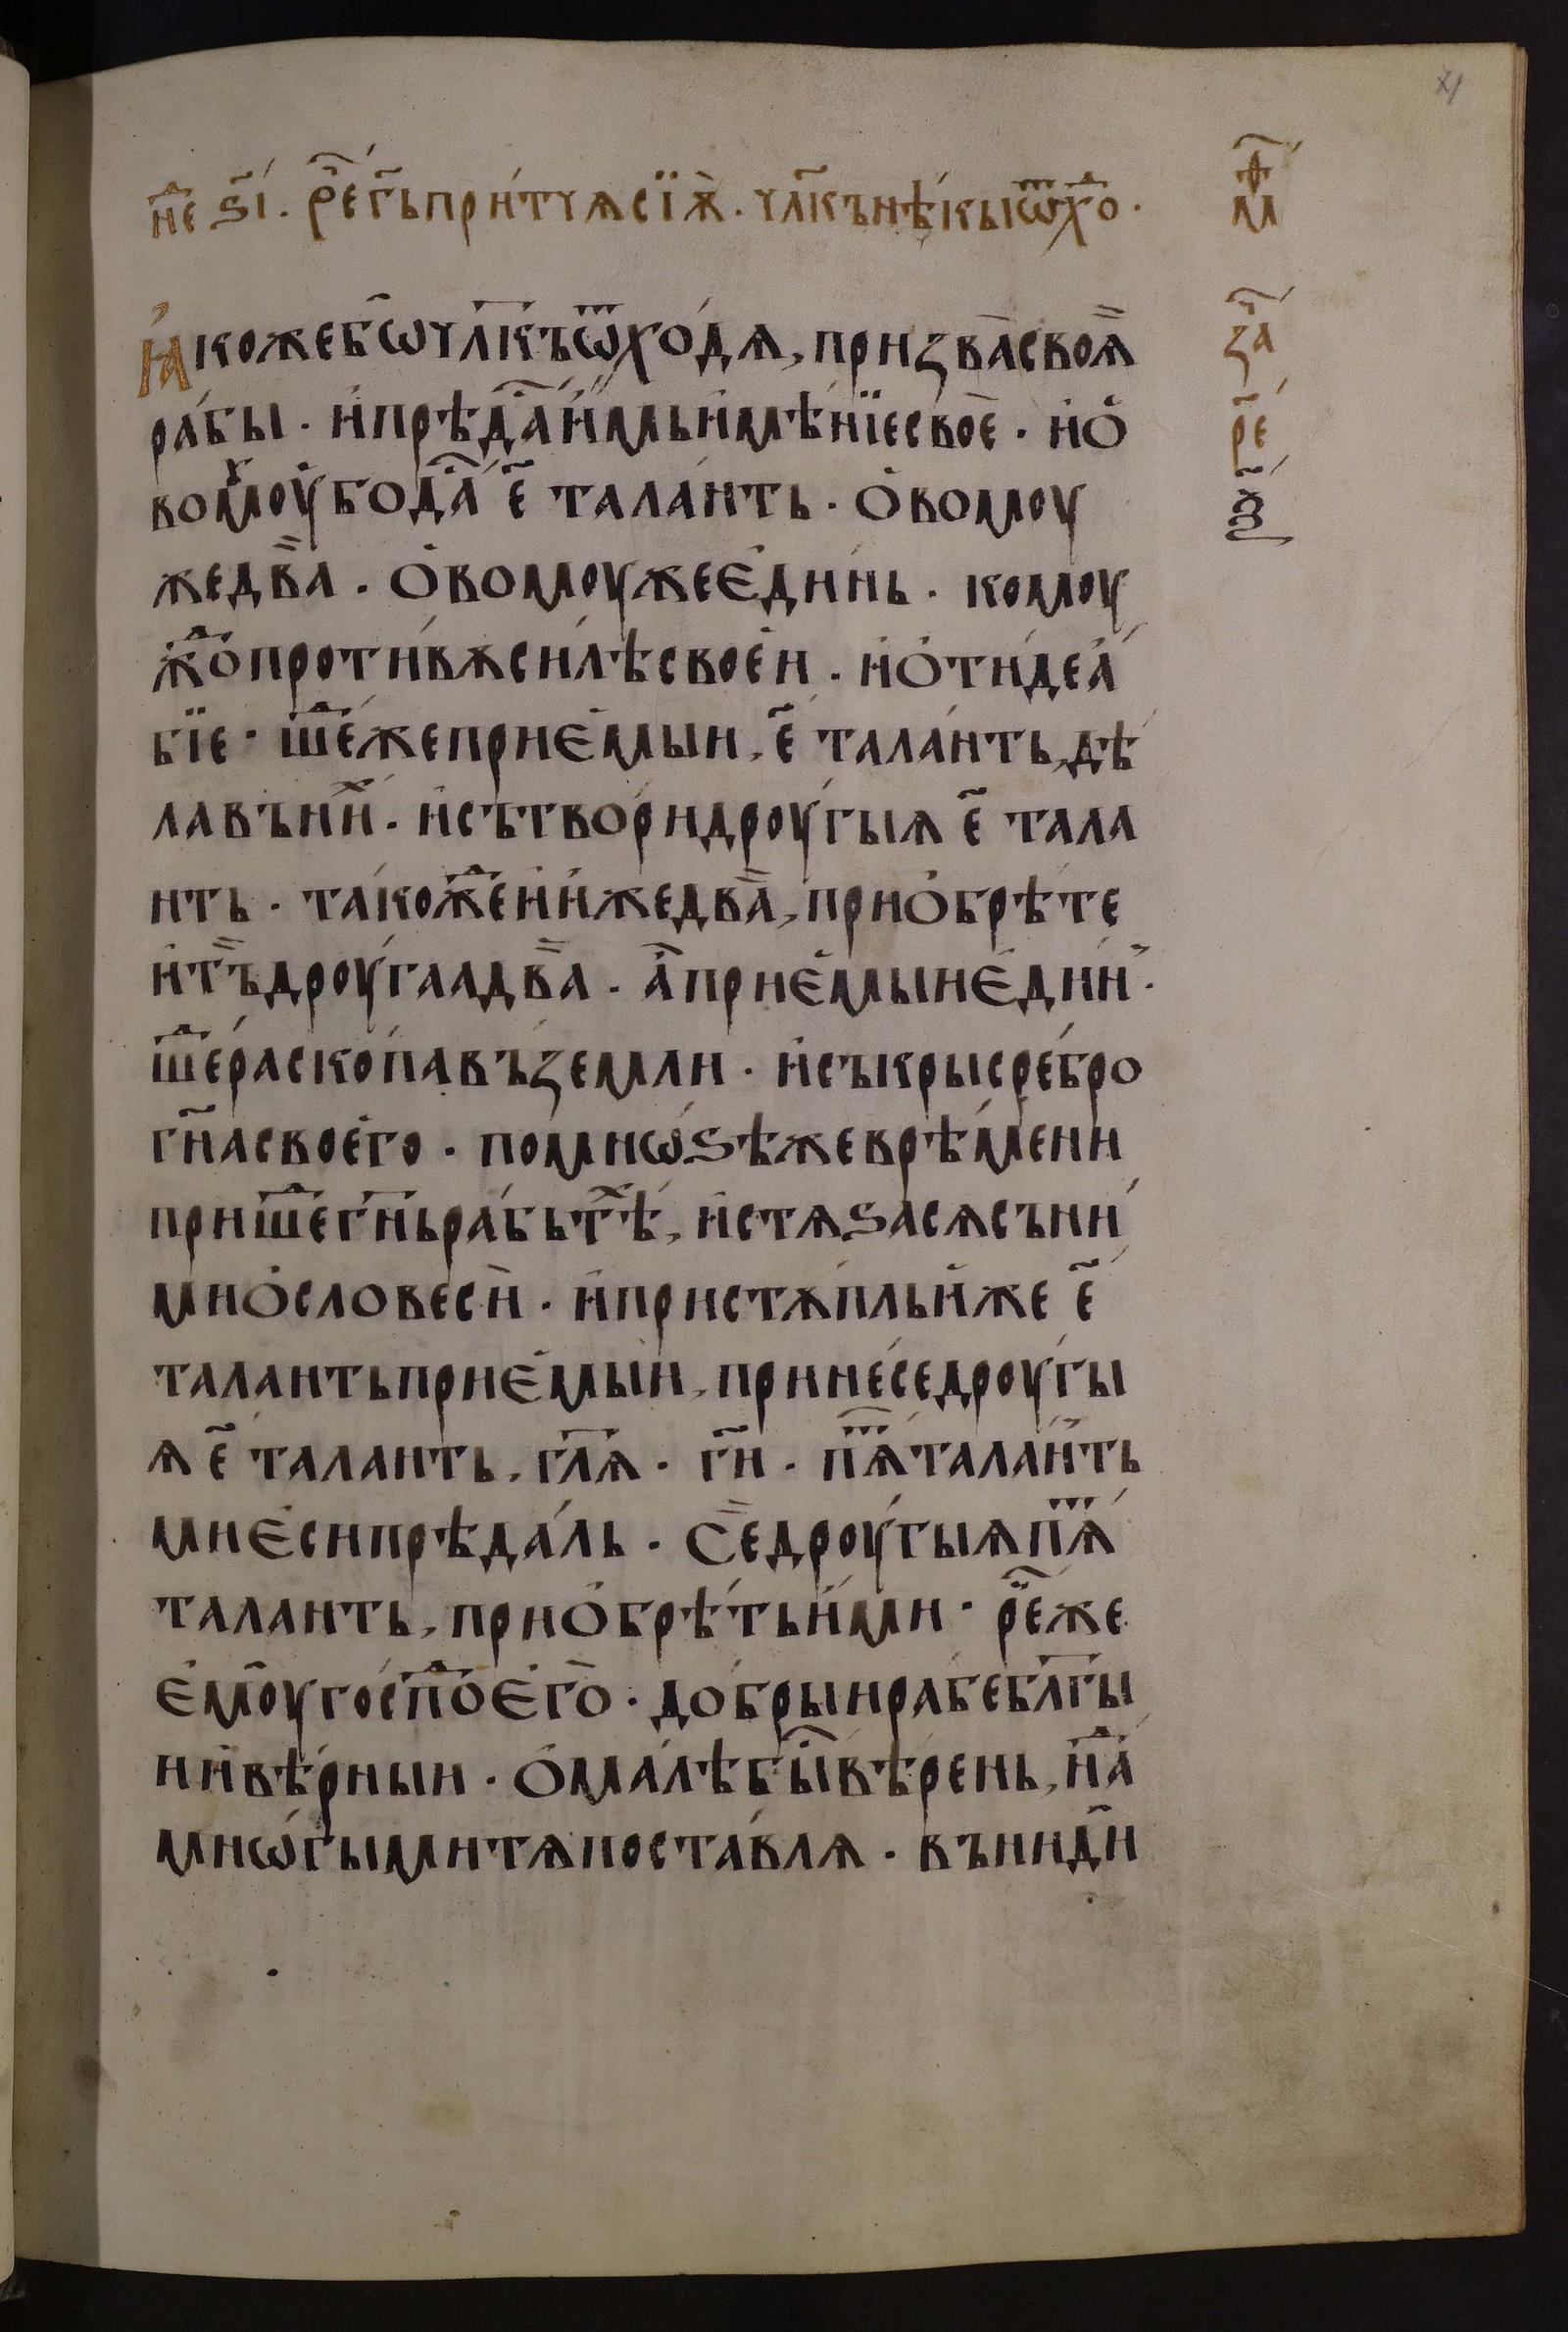 н҃е ѕ҃і. рⷱ҇е г҃ь при́тчѧ сїѫ̀. чл҃къ нѣ́кыи ѿхо́ⷣ.
мⷳ҇ а
Ꙗ҆коже бѡ̑ чл҃къ ѿходѧ́, призва̀ своѧ̀
за҃ч
ра́бы. и҆ прѣда́ⷭ҇ и҆́мь и҆мѣ́нїе своѐ. и҆ ѻ҆́
р҃е
вомꙋ́ ѹ҆́бо да́ⷭ҇ е҃ тала́нть. ѻ҆́вомоу
же два̀. ѻ҆́вомоу же є҆ди́нь. комоу
жⷣо проти́вѫ си́лѣ своє́и. и҆ ѻ҆ти́де а҆́
бїе. шеⷣ́ же прие́мыи, е҃ тала́нть, дѣ́
лавъ ни́ⷯ. и҆ сътвори́ дроу́гыѧ е҃ тала
нть. та́кожⷣе и҆ и҆́же два̀, приѻ҆брѣ́те
и҆ тъ̀ дроу́гаа два̀. а҆́ прие́мыи є҆ди́н.
шеⷣ́ раскопа́ въ земли. и҆ съкры сре́бро
г҃на своего̀. по мнѡ́ѕѣ же врѣ́мени
прише́ⷣ г҃нь ра́бь тѣ́ⷯ, и҆ стѧѕа́сѧ съ ни́
ми ѻ҆ словеси̑. и҆ пристѫ́пль и҆́же е҃
таланть прие́мыи, прине́се дроу́гы
ѧ е҃ таланть, гл҃ѧ. г҃и. пѧⷮ́ тала́нть
мнє́си прѣда́ль. Се̏ дроу́гыѧ пѧⷮ́
таланть, приѻ҆брѣ́ть и҆́ми. рⷱ҇е́ же
є҆мꙋ̑ госпоⷣ́ є҆го̀. до́брыи ра́бе бл҃гы
и и҆ вѣ́рныи. ѻ҆ ма́лѣ бы́ⷭ҇ вѣ́рень, наⷣ́
мнѡ́гыми тѧ поста́влѧ. въни́ди